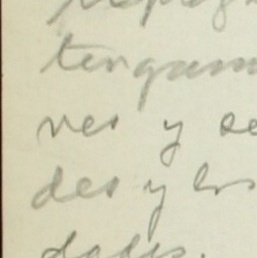 tengam
nes y se
des y los
dades.